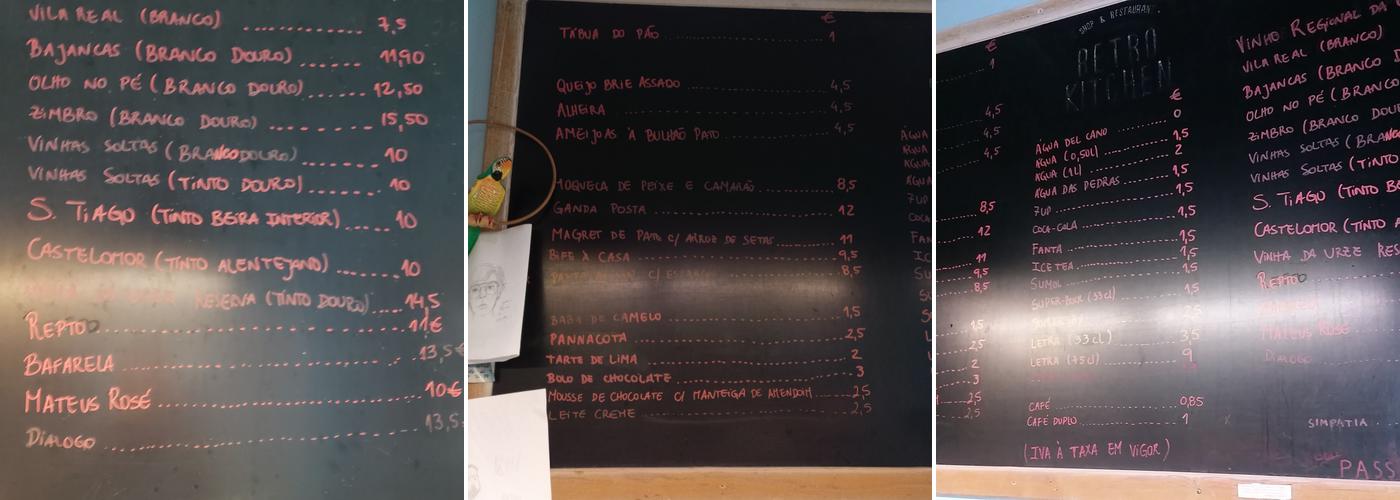 VILA REAL (BRANCO) .......... 7,5
BAJANCAS (BRANCO DOURO) ...... 11,90
OLHO NO PÉ (BRANCO DOURO) ...... 12,50
ZIMBRO (BRANCO DOURO) ....... 15,50
VINHAS SOLTAS (BRANCO DOURO) ....... 10
VINHAS SOLTAS (TINTO DOURO) ....... 10
S. TIAGO (TINTO BEIRA INTERIOR) .... 10
CASTELOMOR (TINTO ALENTEJANO) ..... 10
RESERVA (TINTO DOURO) .... 14,5
REPTO .......... 11€
BAFARELA .......... 13,5€
MATEUS ROSÉ .......... 10€
DIALOGO .......... 13,5
€
TÁBUA DO PÃO .......... 1
QUEIJO BRIE ASSADO .......... 4,5
ALHEIRA .......... 4,5
AMEIJOAS À BULHÃO PATO .......... 4,5
MOQUECA DE PEIXE E CAMARÃO .......... 8,5
GANDA POSTA .......... 12
MAGRET DE PATO C/ ARROZ DE SETAS .......... 11
BIFE À CASA .......... 9,5
C/ .......... 8,5
BABA DE CAMELO .......... 1,5
PANNACOTA .......... 2,5
TARTE DE LIMA .......... 2
BOLO DE CHOCOLATE .......... 3
MOUSSE DE CHOCOLATE C/ MANTEIGA DE AMENDOIM ..... 2,5
LEITE CREME .......... 2,5
SHOP & RESTAURANT
RETRO
KITCHEN
€
ÁGUA DEL CANO .......... 0
ÁGUA (0,50L) .......... 1,5
ÁGUA (1L) .......... 2
ÁGUA DAS PEDRAS .......... 1,5
7UP .......... 1,5
COCA-COLA .......... 1,5
FANTA .......... 1,5
ICE TEA .......... 1,5
SUMOL .......... 1,5
SUPER-BOCK (33cl) .......... 1,5
LETRA (33cl) .......... 3,5
LETRA (75cl) .......... 9
CAFÉ .......... 0,85
CAFÉ DUPLO .......... 1
(IVA À TAXA EM VIGOR)
VINHO REGIONAL DA
VILA REAL (BRANCO)
BAJANCAS (BRANCO D
OLHO NO PÉ (BRANC
ZIMBRO (BRANCO DO
VINHAS SOLTAS (BRAN
VINHAS SOLTAS (TINTO
S. TIAGO (TINTO B
CASTELOMOR (TINTO
VINHA DA URZE RES
REPTO
MATEUS ROSÉ
DIALOGO
SIMPATIA
PASS